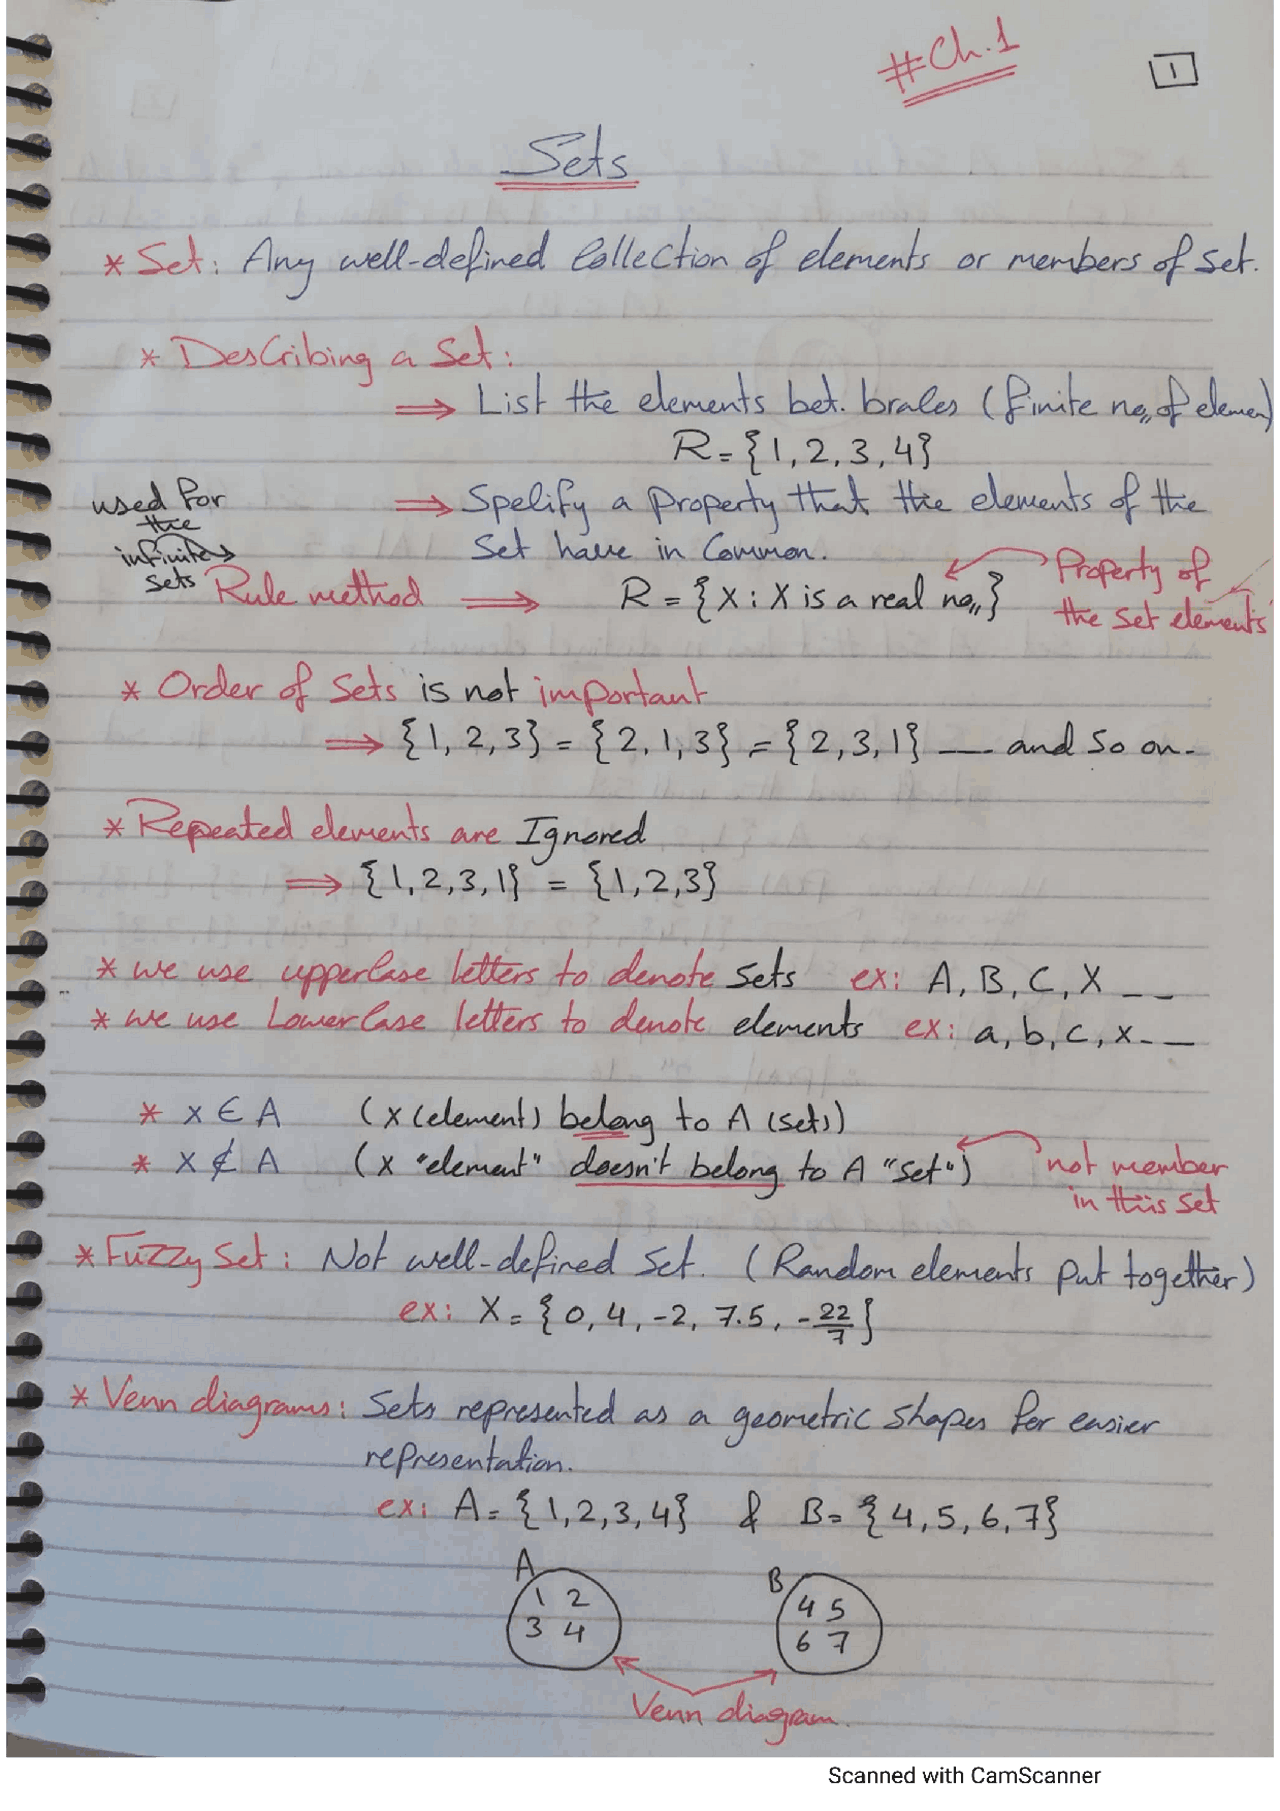 #Ch.1
1
Sets
* Set: Any well-defined Collection of elements or members of set.
* Describing a Set:
⇒ List the elements bet. braces (finite no,, of elemen)
R = {1, 2, 3, 4}
used for
the
infinite
sets
⇒ Specify a Property that the elements of the
Set have in Common.
Rule method ⇒ R = {X : X is a real no,,}
Property of
the set elements
* Order of Sets is not important
⇒ {1, 2, 3} = {2, 1, 3} = {2, 3, 1} __. and so on.
* Repeated elements are Ignored
⇒ {1, 2, 3, 1} = {1, 2, 3}
* we use upperCase letters to denote Sets ex: A, B, C, X _ _
* we use LowerCase letters to denote elements ex: a, b, c, x _ _
* x ∈ A (x (element) belong to A (set))
* x ∉ A (x "element" doesn't belong to A "set")
not member
in this set
* Fuzzy Set : Not well-defined Set. (Random elements Put together)
ex: X = {0, 4, -2, 7.5, -22/7}
* Venn diagrams: Sets represented as a geometric shapes for easier
representation.
ex: A = {1, 2, 3, 4} & B = {4, 5, 6, 7}
A B
1 2 4 5
3 4 6 7
Venn diagram.
Scanned with CamScanner